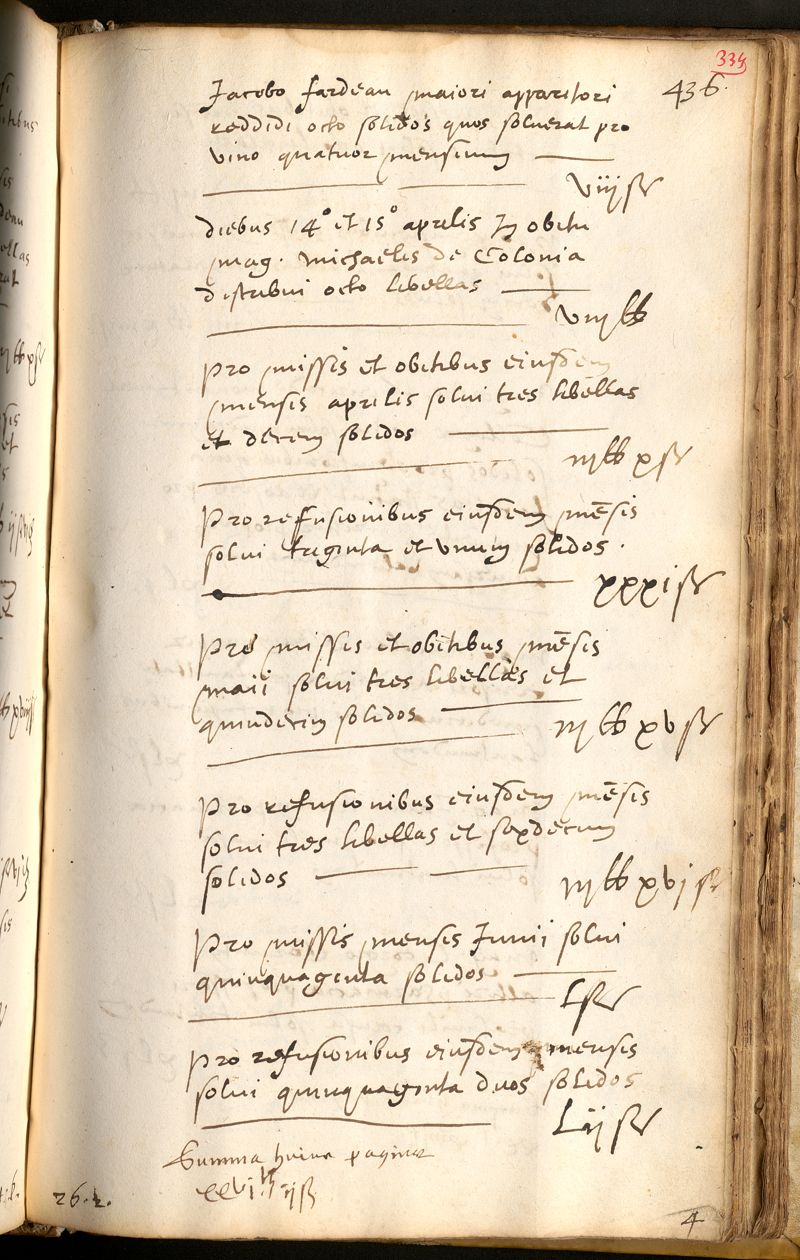 335
436.
Jacobo fardeau maiori apparitori
reddidi octo solidos quos soluerat pro
vino quatuor mensium
viij sz
diebus 14° et 15° aprilis In obitu
mag. michaelis de Colonia
distribui octo libellas
viij lb
Pro missis et obitibus eiusdem
mensis aprilis solui tres libellas
et decem solidos
iij lb x sz
Pro refusionibus eiusdem mēsis
solui triginta et vnum solidos.
xxxi sz
Pro missis et obitibus mēsis
maii solui tres libellas et
quindecim solidos
iij lb xv sz
Pro refusionibus eiusdem mēsis
solui tres libellas et sexdecim
solidos
iij lb xvj sz
Pro missis mensis Iunii solui
quinquaginta solidos
L sz
Pro refusionibus eiusdem mensis
solui quinquaginta duos solidos
Lij sz
Summa huius paginae
xxvi lb ij ß
26. 2.
4